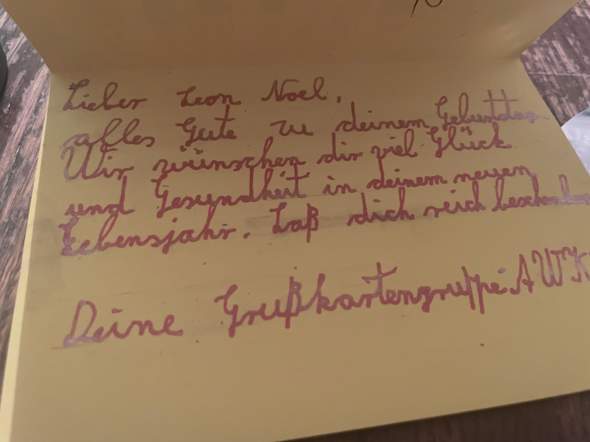 Lieber Leon Noel,
alles Gute zu deinem Geburtstag
Wir wünschen dir viel Glück
und Gesundheit in deinem neuen
Lebensjahr. Laß dich reich beschenken
Deine Grußkartengruppe AWK